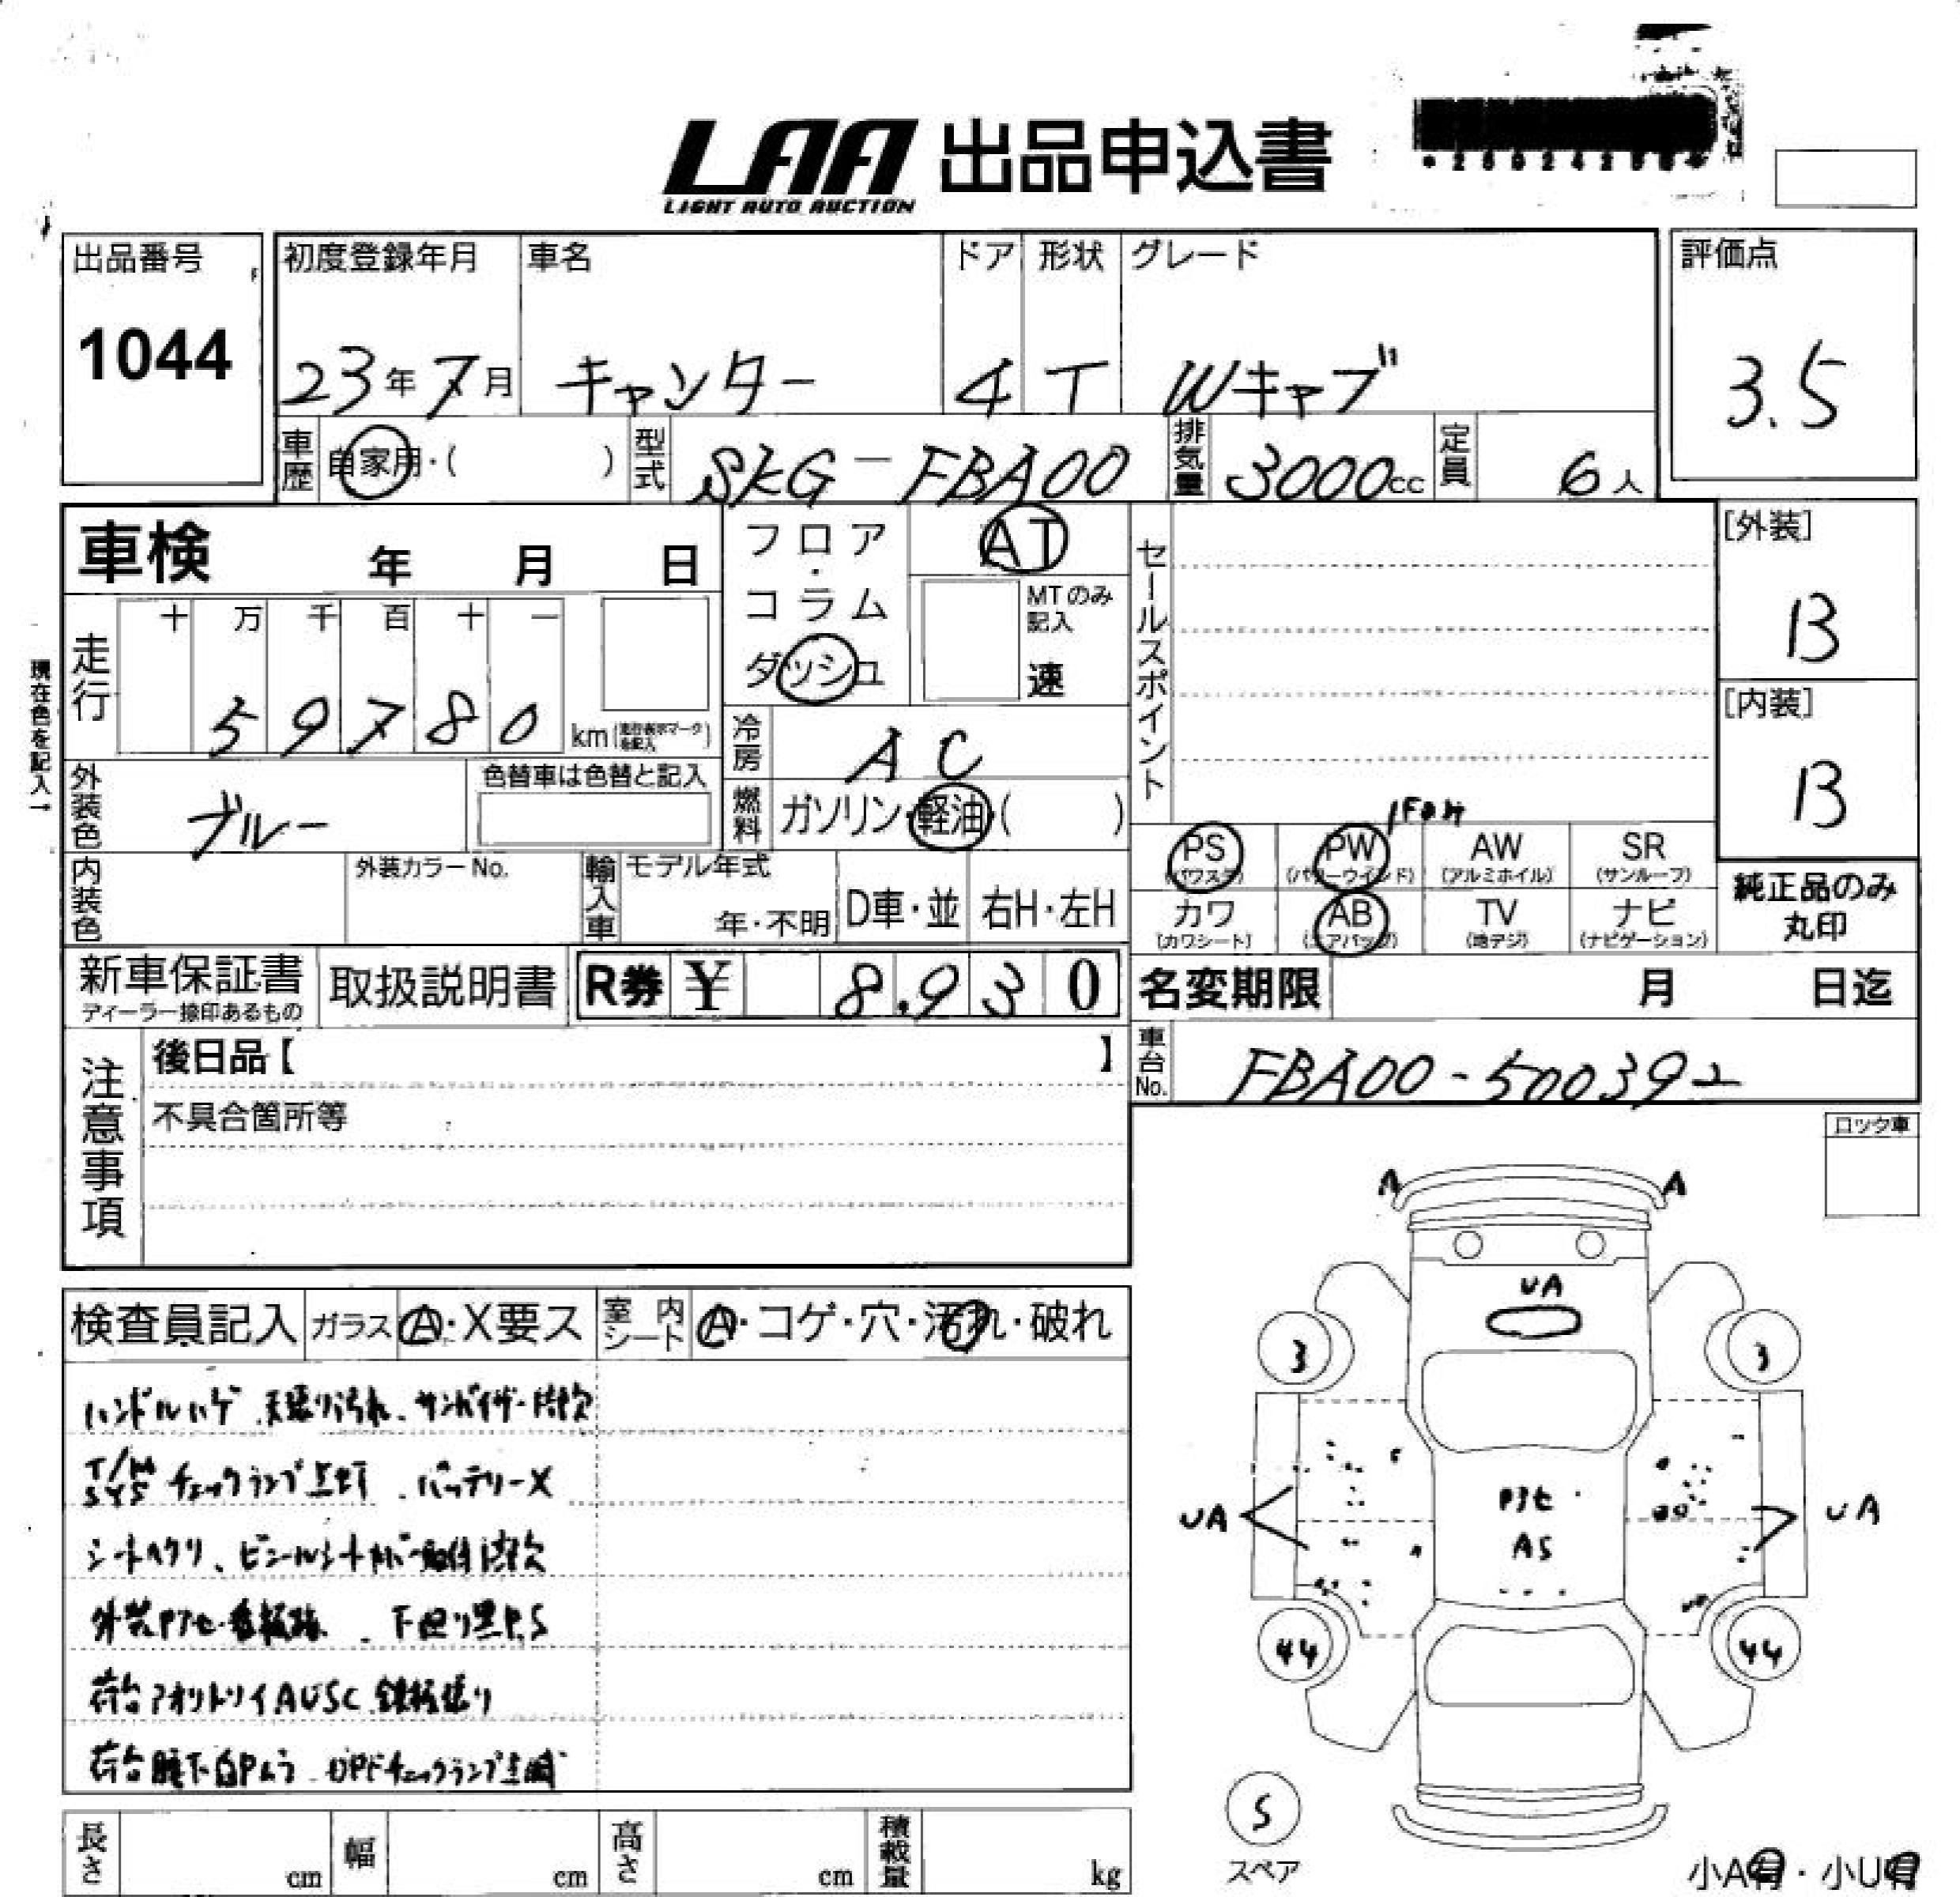 LAA 出品申込書
LIGHT AUTO AUCTION
出品番号
1044
初度登録年月 車名 ドア 形状 グレード
23年7月 キャンター 4 T Wキャブ
評価点
3.5
車歴 自家用・( ) 型式 SKG-FBA00 排気量 3000cc 定員 6人
車検 年 月 日
フロア・コラム ダッシュ
AT
MTのみ記入
速
セールスポイント
[外装]
B
[内装]
B
現在色を記入→
走行 十 万 千 百 十 一
5 9 7 8 0 km (走行表示マークを記入)
冷房 AC
外装色 ブルー 色替車は色替と記入
燃料 ガソリン・軽油・( )
内装色 外装カラーNo.
輸入車 モデル年式 年・不明 D車・並 右H・左H
PS (パワステ) PW (パワーウインド) AW (アルミホイル) SR (サンルーフ)
カワ (カワシート) AB (エアバッグ) TV (地デジ) ナビ (ナビゲーション)
純正品のみ
丸印
新車保証書 ディーラー捺印あるもの
取扱説明書
R券 ¥ 8,930
名変期限 月 日迄
車台No. FBA00-500392
注意事項
後日品【 】
不具合箇所等
ロック車
検査員記入 ガラス A・X要ス 室内シート A・コゲ・穴・汚れ・破れ
ハンドルハゲ、天張り汚れ、サンバイザー
T/M SYS チェックランプ点灯、バッテリーX
外装Pアセ・看板跡、下廻り黒P,S
荷台アオリトリイAUSC 鉄板張り
DPFチェックランプ点滅
A A
UA
3 3
UA UA
Pアセ
AS
44 44
S
スペア
長さ cm 幅 cm 高さ cm 積載量 kg
小A有・小U有